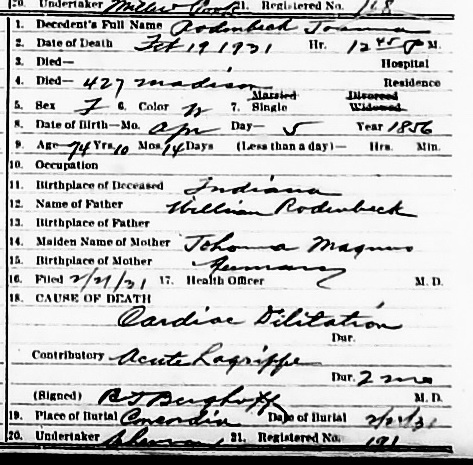 20. Undertaker Miller Cook 21. Registered No. 168
1. Decedent's Full Name Rodenbeck Joanna
2. Date of Death Feb 19 1931 Hr. 12 45 P M.
3. Died— Hospital
4. Died— 427 Madison Residence
Married Divorced
5. Sex F 6. Color W 7. Single Widowed
8. Date of Birth—Mo. Apr Day— 5 Year 1856
9. Age 74 Yrs. 10 Mos. 14 Days (Less than a day)— Hrs. Min.
10. Occupation
11. Birthplace of Deceased Indiana
12. Name of Father William Rodenbeck
13. Birthplace of Father
14. Maiden Name of Mother Magnus
15. Birthplace of Mother Germany
16. Filed 2/21/31 17. Health Officer M. D.
18. CAUSE OF DEATH
Cardiac Dilitation
Dur.
Contributory Acute Lagrippe
Dur. 2 mo
(Signed) Berghoff M. D.
19. Place of Burial Concordia Date of Burial 2/21/31
20. Undertaker 21. Registered No. 191